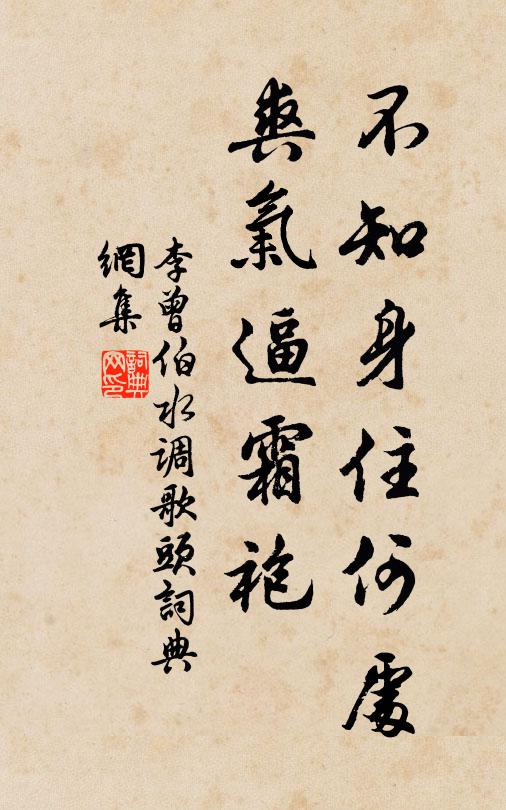 不知身住何處
爽氣逼霜袍
李曾伯水調歌頭詞典
網集
詞典
网印